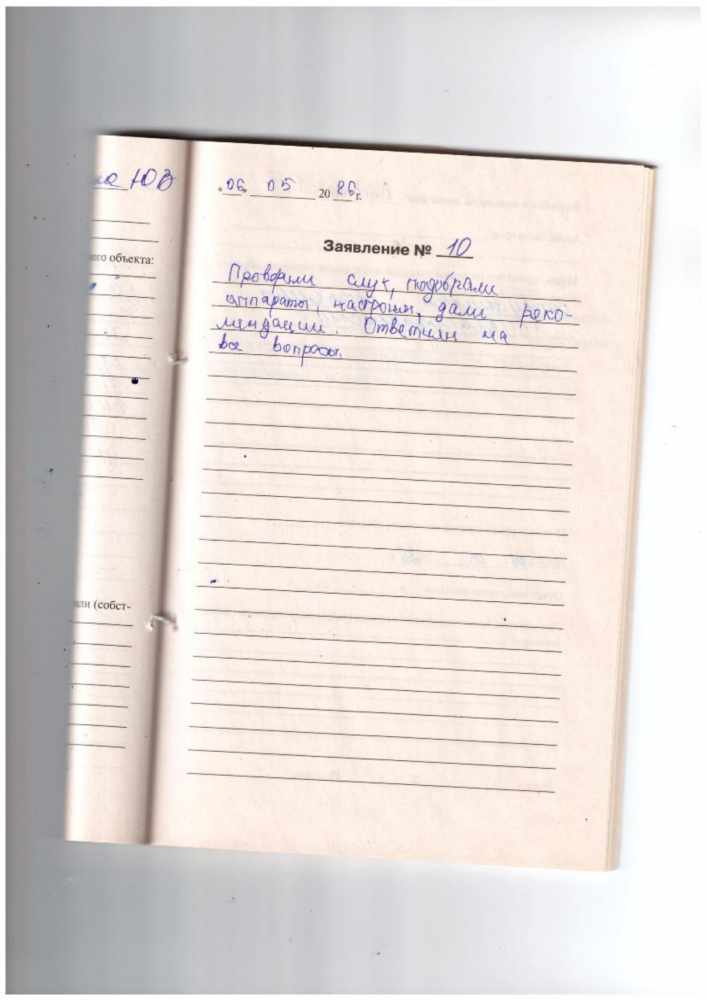 на ЮВ
ого объекта:
или (собст-
"06" 05 2026 г.
Заявление № 10
Проверили слух, подобрали
аппараты, настроили, дали реко-
мендации. Ответили на
все вопросы.